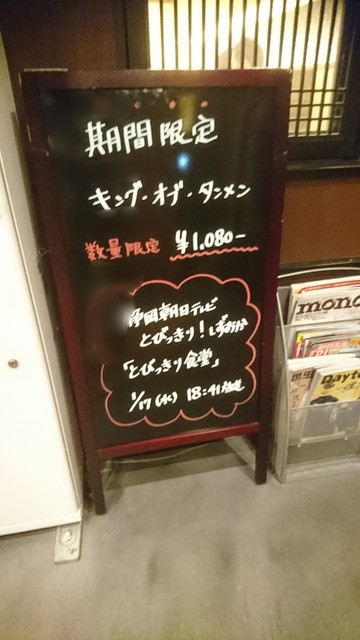 期間限定
キング・オブ・タンメン
数量限定 ¥1,080-
静岡朝日テレビ
とびっきり!しずおか
「とびっきり食堂」
1/17(水) 18:41放送
mono
Dayto